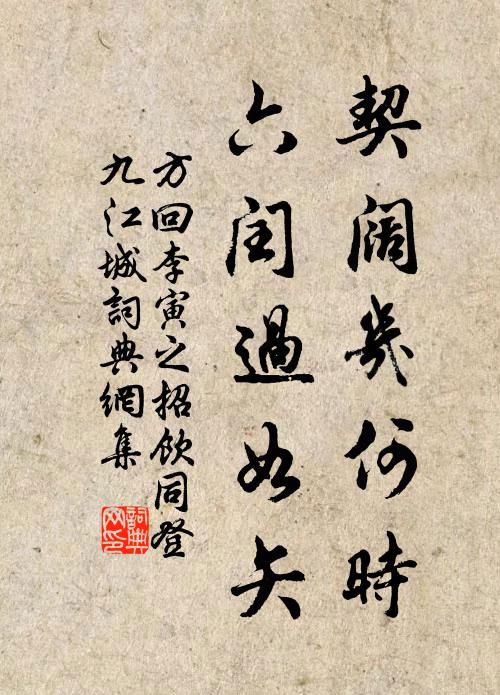 契闊幾何時
六閏過如矢
方回李寅之招飲同登
九江城詞典網集
詞典
网印